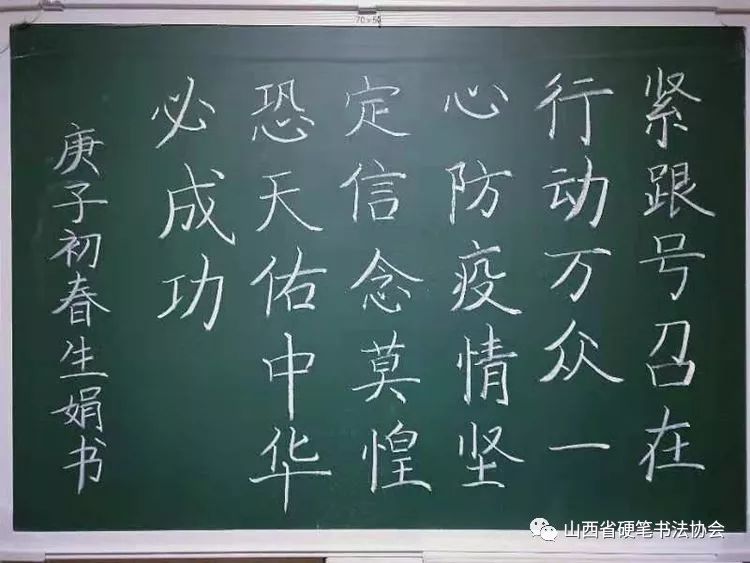 紧跟号召在
行动万众一
心防疫情坚
定信念莫惶
恐天佑中华
必成功
庚子初春生娟书
70×50
山西省硬笔书法协会